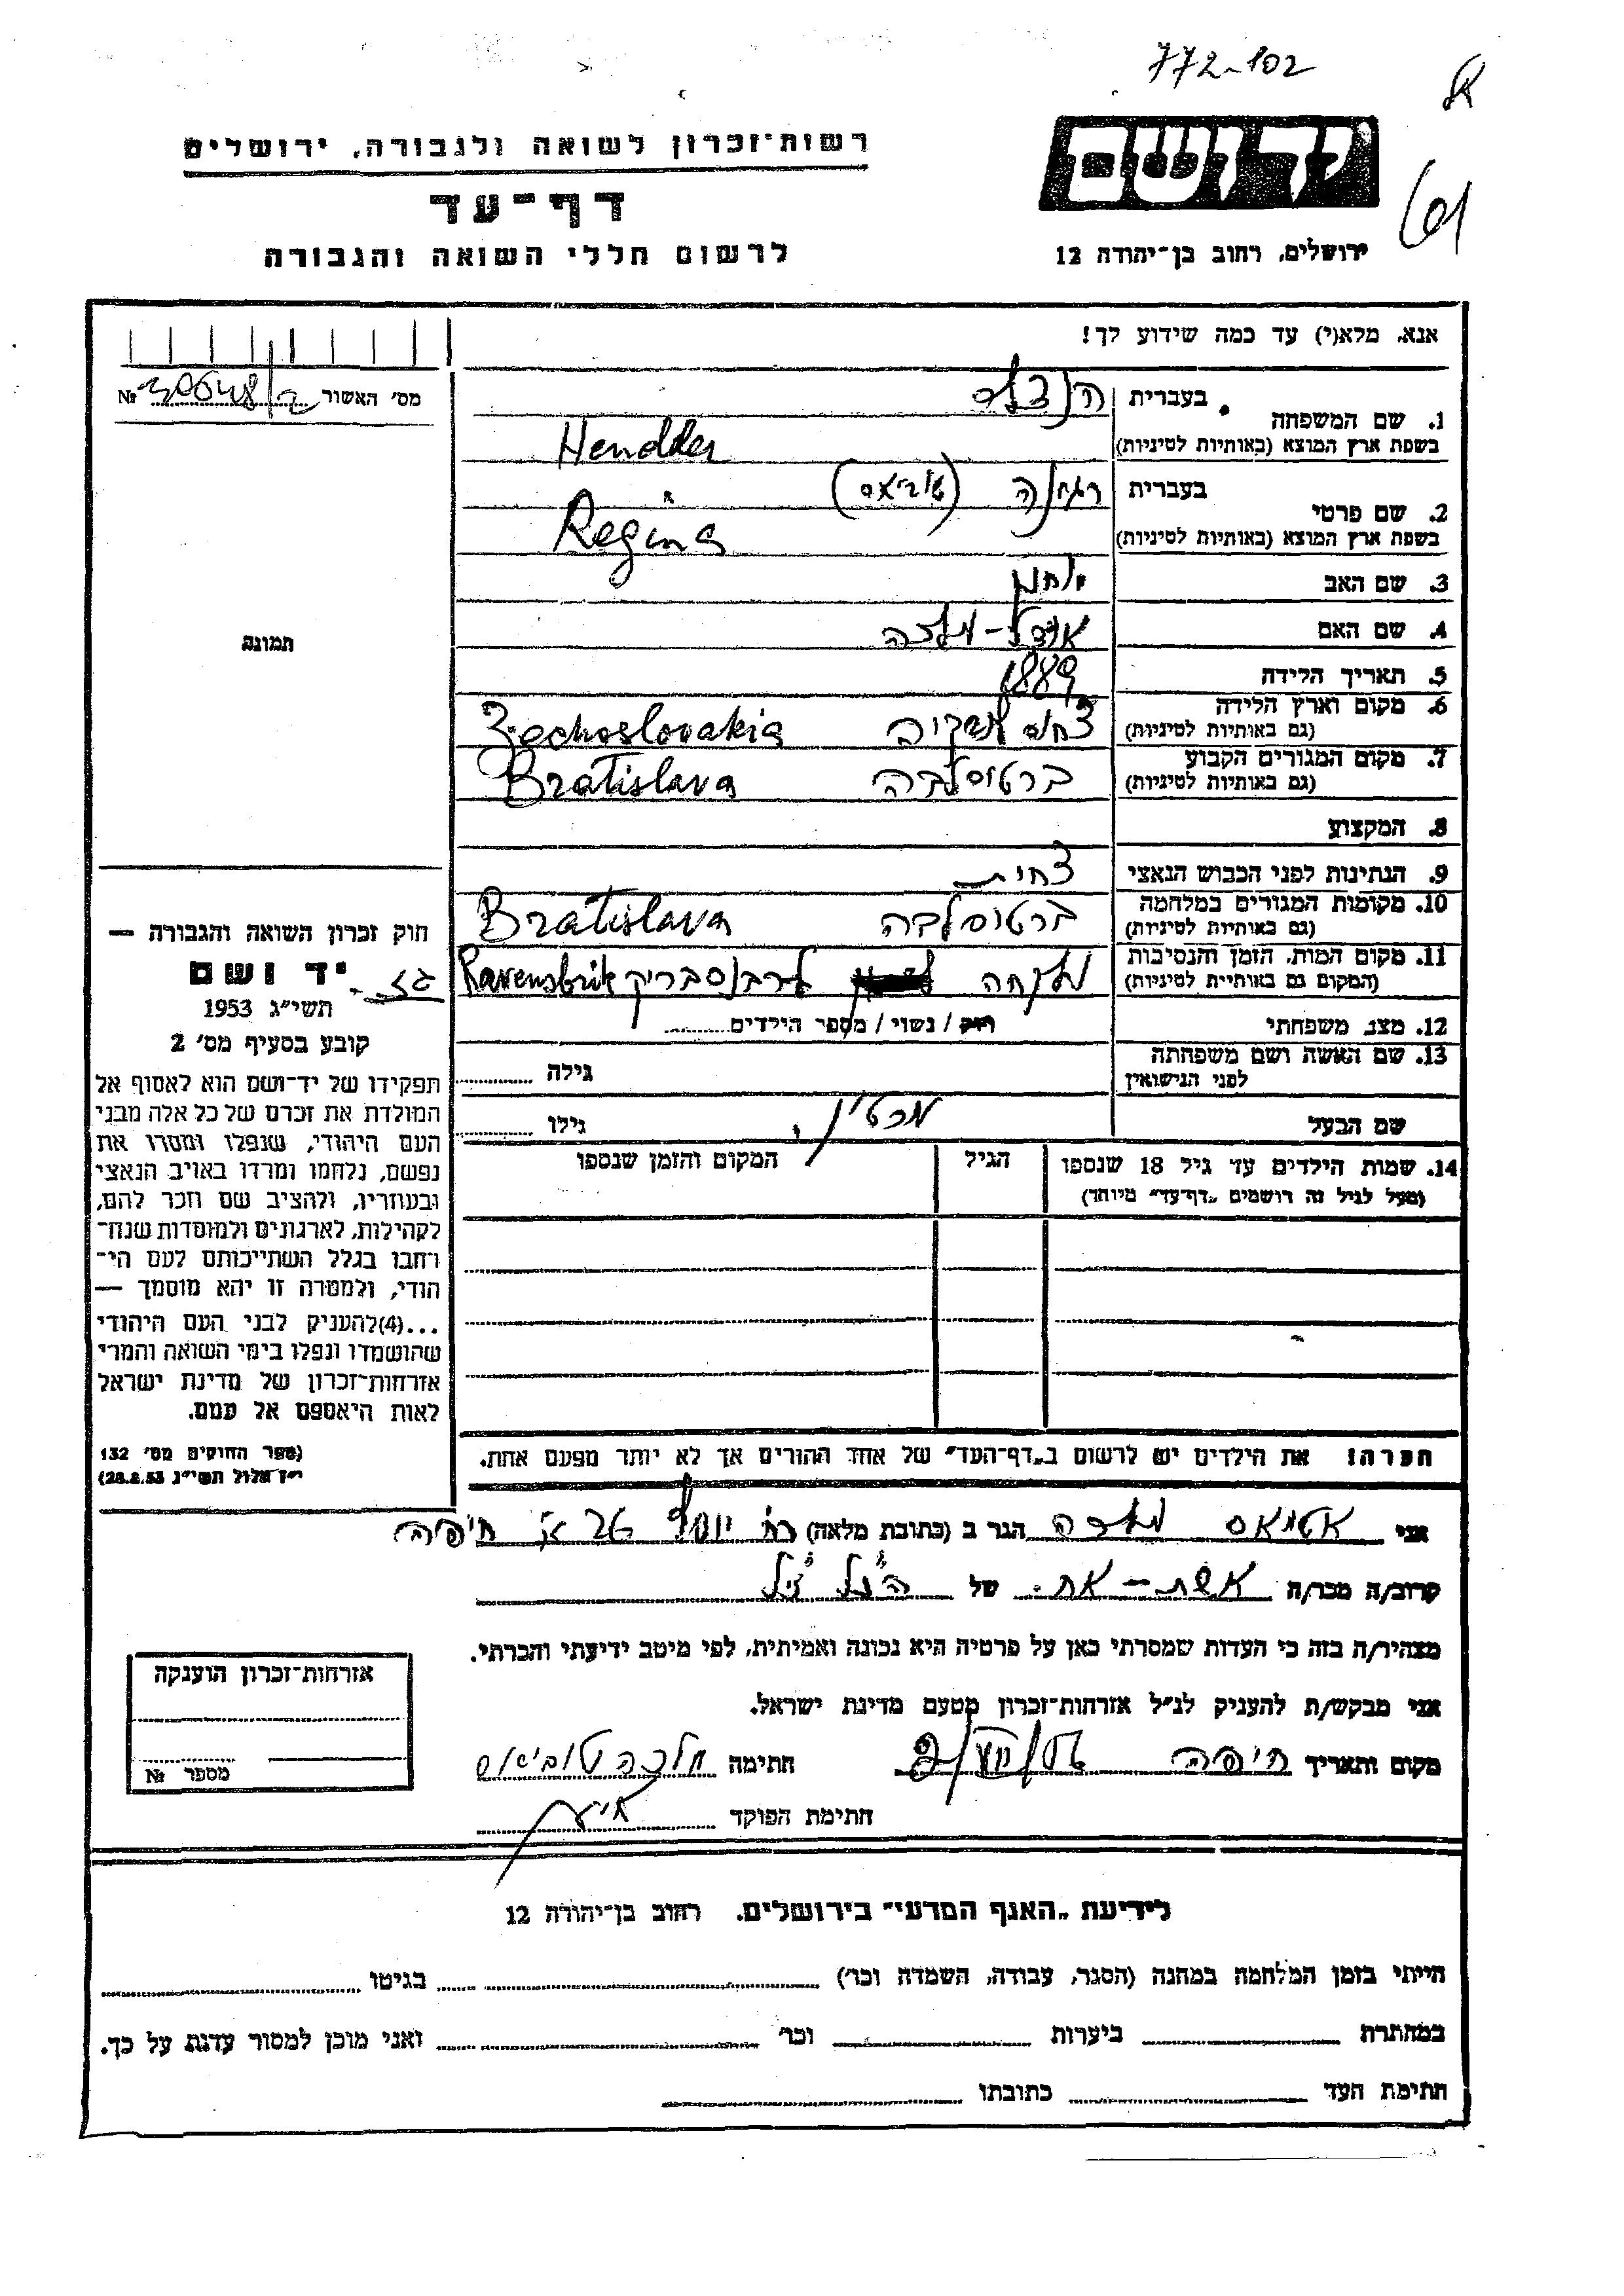 772-102
רשות־זכרון לשואה ולגבורה, ירושלים
דף־עד
לרשום חללי השואה והגבורה
יד ושם
ירושלים, רחוב בן־יהודה 12
אנא, מלא(י) עד כמה שידוע לך!
מס׳ האשור №
1. שם המשפחה בעברית
בשפת ארץ המוצא (באותיות לטיניות) Hendder
2. שם פרטי בעברית רגינה
בשפת ארץ המוצא (באותיות לטיניות) Regina
3. שם האב
4. שם האם
5. תאריך הלידה 1889
6. מקום וארץ הלידה
(גם באותיות לטיניות) Zechoslovakia
7. מקום המגורים הקבוע
(גם באותיות לטיניות) ברטיסלבה Bratislava
8. המקצוע
9. הנתינות לפני הכבוש הנאצי צ׳כית
10. מקומות המגורים במלחמה
(גם באותיות לטיניות) ברטיסלבה Bratislava
11. מקום המות, הזמן והנסיבות
(המקום גם באותיות לטיניות) נלקחה לרבנסבריק Ravensbrik
12. מצב משפחתי רוק / נשוי / מספר הילדים
13. שם האשה ושם משפחתה
לפני הנישואין גילה
שם הבעל מרטין גילו
14. שמות הילדים עד גיל 18 שנספו הגיל המקום והזמן שנספו
(מעל לגיל זה רושמים „דף־עד״ מיוחד)
תמונה
חוק זכרון השואה והגבורה —
יד ושם
תשי״ג 1953
קובע בסעיף מס׳ 2
תפקידו של יד־ושם הוא לאסוף אל
המולדת את זכרם של כל אלה מבני
העם היהודי, שנפלו ומסרו את
נפשם, נלחמו ומרדו באויב הנאצי
ובעוזריו, ולהציב שם וזכר להם,
לקהילות, לארגונים ולמוסדות שנח־
רחבו בגלל השתייכותם לעם הי־
הודי, ולמטרה זו יהא מוסמך —
...(4)להעניק לבני העם היהודי
שהושמדו ונפלו בימי השואה והמרי
אזרחות־זכרון של מדינת ישראל
לאות היאספם אל עמם.
(ספר החוקים מס׳ 132
י״ז אלול תשי״ג 28.8.53)
הערה! את הילדים יש לרשום ב„דף־העד״ של אחד ההורים אך לא יותר מפעם אחת.
אני הגר ב (כתובת מלאה) חיפה
קרוב/ה מכר/ה אשת־אח של הנ״ל
מצהיר/ה בזה כי העדות שמסרתי כאן על פרטיה היא נכונה ואמיתית, לפי מיטב ידיעתי והכרתי.
אני מבקש/ת להעניק לנ״ל אזרחות־זכרון מטעם מדינת ישראל.
מקום ותאריך חיפה חתימה
חתימת הפוקד
אזרחות־זכרון הוענקה
מספר №
לידיעת „האגף המדעי״ בירושלים, רחוב בן־יהודה 12
הייתי בזמן המלחמה במחנה (הסגר, עבודה, השמדה וכו׳) בגיטו
במחתרת ביערות וכו׳ ואני מוכן למסור עדות על כך.
חתימת העד כתובתו